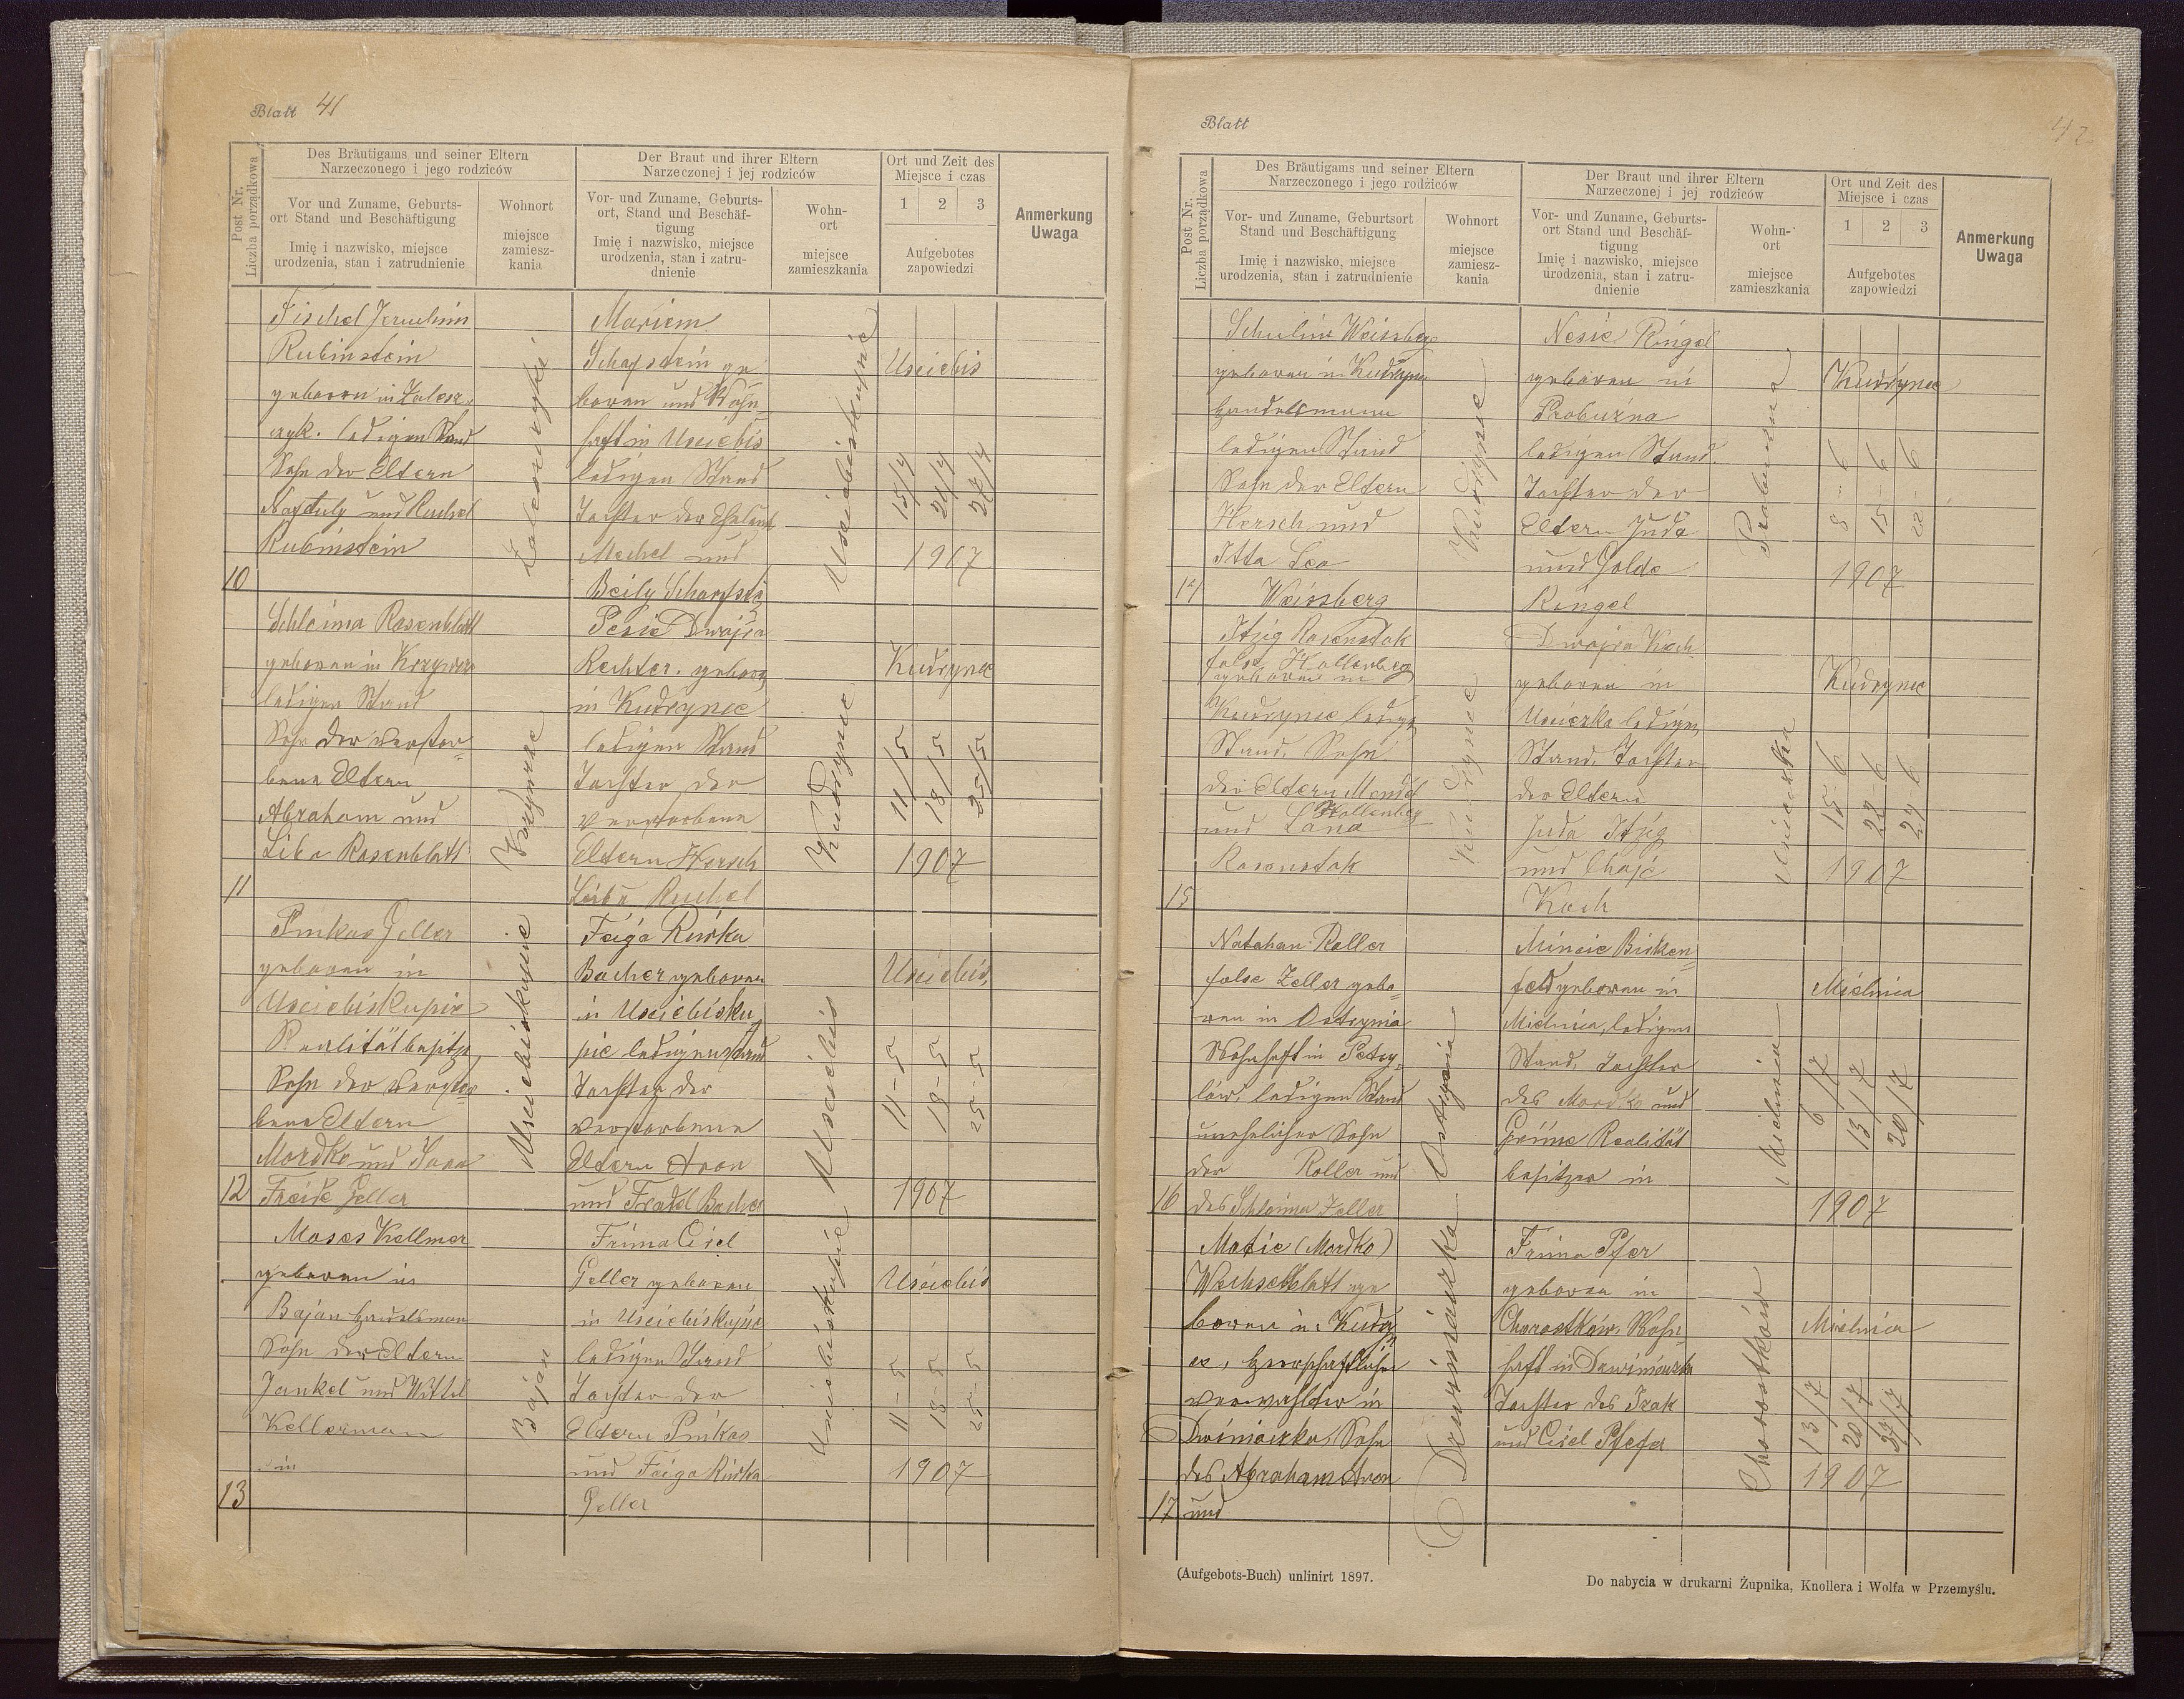 Blatt 41
Post Nr.
Liczba porządkowa
Des Bräutigams und seiner Eltern
Narzeczonego i jego rodziców
Vor und Zuname, Geburts-
ort Stand und Beschäftigung
Imię i nazwisko, miejsce
urodzenia, stan i zatrudnienie
Wohnort
miejsce
zamiesz-
kania
Der Braut und ihrer Eltern
Narzeczonej i jej rodziców
Vor- und Zuname, Geburts-
ort, Stand und Beschäf-
tigung
Imię i nazwisko, miejsce
urodzenia, stan i zatru-
dnienie
Wohn-
ort
miejsce
zamieszkania
Ort und Zeit des
Miejsce i czas
1 2 3
Aufgebotes
zapowiedzi
Anmerkung
Uwaga
10
Fischel
Rubinstein
geboren in Zalesz
czyk. ledigen Stand
Sohn der Eltern
Naftuly und Ruchel
Rubinstein
Mariem
Scharfstein ge
boren und Wohn-
haft in Usciebis
ledigen Stand
Tochter der
Mechel und
Beily
Usciebiskupie
Usciebis
15/4
21/4
28/4
1907
11
Schleima Rosenblatt
geboren in Krzywcze
ledigen Stand
Sohn der verstor-
bene Eltern
Abraham und
Liba Rosenblatt
Krzywcze
Pesie Dwojra
Rechter. geboren
in Kudrynce
ledigen Stand
Tochter der
verstorbene
Eltern Hersch
Leib u Ruchel
Kudrynce
Kudrynce
11/5
18/5
25/5
1907
12
Pinkas Geller
geboren in
Usciebiskupie
Realitätbesitzer
Sohn der verstor-
bene Eltern
Mordko und Sara
Freide Geller
Usciebiskupie
Feiga Riwka
Bacher geboren
in Usciebisku
pie ledigen Stand
Tochter der
verstorbene
Eltern Aron
und Fradl Bacher
Usciebis
Usciebis
11-5
18-5
25-5
1907
13
Moses Kellmer
geboren in
Bajan Handelsman
Sohn der Eltern
Jankel und Wittel
Kellerman
Bajan
Frima Cisel
Geller geboren
in Usciebiskupie
ledigen Stand
Tochter der
Eltern Pinkas
und Feiga Riwka
Geller
Usciebiskupie
Usciebis
11-5
18-5
25-5
1907
Blatt
42
Post Nr.
Liczba porządkowa
Des Bräutigams und seiner Eltern
Narzeczonego i jego rodziców
Vor- und Zuname, Geburtsort
Stand und Beschäftigung
Imię i nazwisko, miejsce
urodzenia, stan i zatrudnienie
Wohnort
miejsce
zamiesz-
kania
Der Braut und ihrer Eltern
Narzeczonej i jej rodziców
Vor- und Zuname, Geburts-
ort Stand und Beschäf-
tigung
Imię i nazwisko, miejsce
urodzenia, stan i zatru-
dnienie
Wohn-
ort
miejsce
zamieszkania
Ort und Zeit des
Miejsce i czas
1 2 3
Aufgebotes
zapowiedzi
Anmerkung
Uwaga
14
Schulim Weissberg
geboren in Kudrync
Handelsmann
ledigen Stand
Sohn der Eltern
Hersch und
Itta Lea
Weissberg
Kudrynce
Nesie Ringel
geboren in
Probuzna
ledigen Stand.
Tochter der
Eltern Juda
und Golde
Ringel
Probuzna
Kudrynce
8-6
15-6
22-6
1907
15
Itzig Rosenstok
false Hollenberg
geboren in
Kudrynce ledigen
Stand, Sohn
der Eltern
Hollenberg
und Lana
Rosenstok
Kudrynce
Dwojra Koch
geboren in
Uscieczka ledigen
Stand, Tochter
der Eltern
Juda Itzig
und Chaje
Koch
Uscieczka
Kudrynce
15-6
22-6
29-6
1907
16
Natahan Roller
false Zeller gebo-
ren in Ostrynia
Wohnhaft in
ledigen Stand
unehelicher Sohn
der Roller und
des Schloima Zeller
Ostrynia
Mincie Birken-
feld geboren in
Mielnica, ledigen
Stand, Tochter
des Mordko und
Grüne Realität
besitzer in
Mielnica
Mielnica
6/7
13/7
20/7
1907
17
Motie (Mordko)
Wechselblatt ge
boren in Kudryn
ce,
in
Dwiniaczka, Sohn
des Abraham Aron
und
Dzwiniaczka
Frima Pfer
geboren in
Chorostków, Wohn-
haft in Dzwiniaczka
Tochter des Izak
und Cisel
Chorostków
Mielnica
13/7
20/7
27/7
1907
(Aufgebots-Buch) unlinirt 1897.
Do nabycia w drukarni Żupnika, Knollera i Wolfa w Przemyślu.